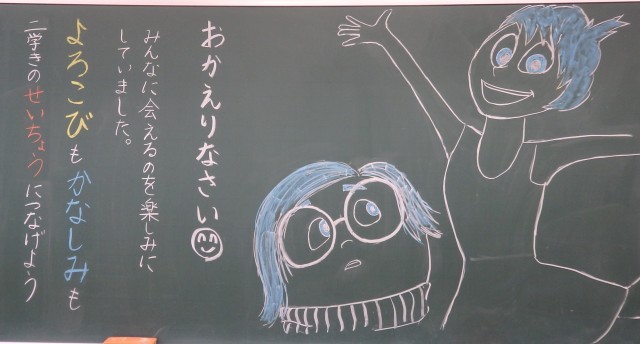 おかえりなさい
みんなに会えるのを楽しみに
していました。
よろこびもかなしみも
二学きのせいちょうにつなげよう